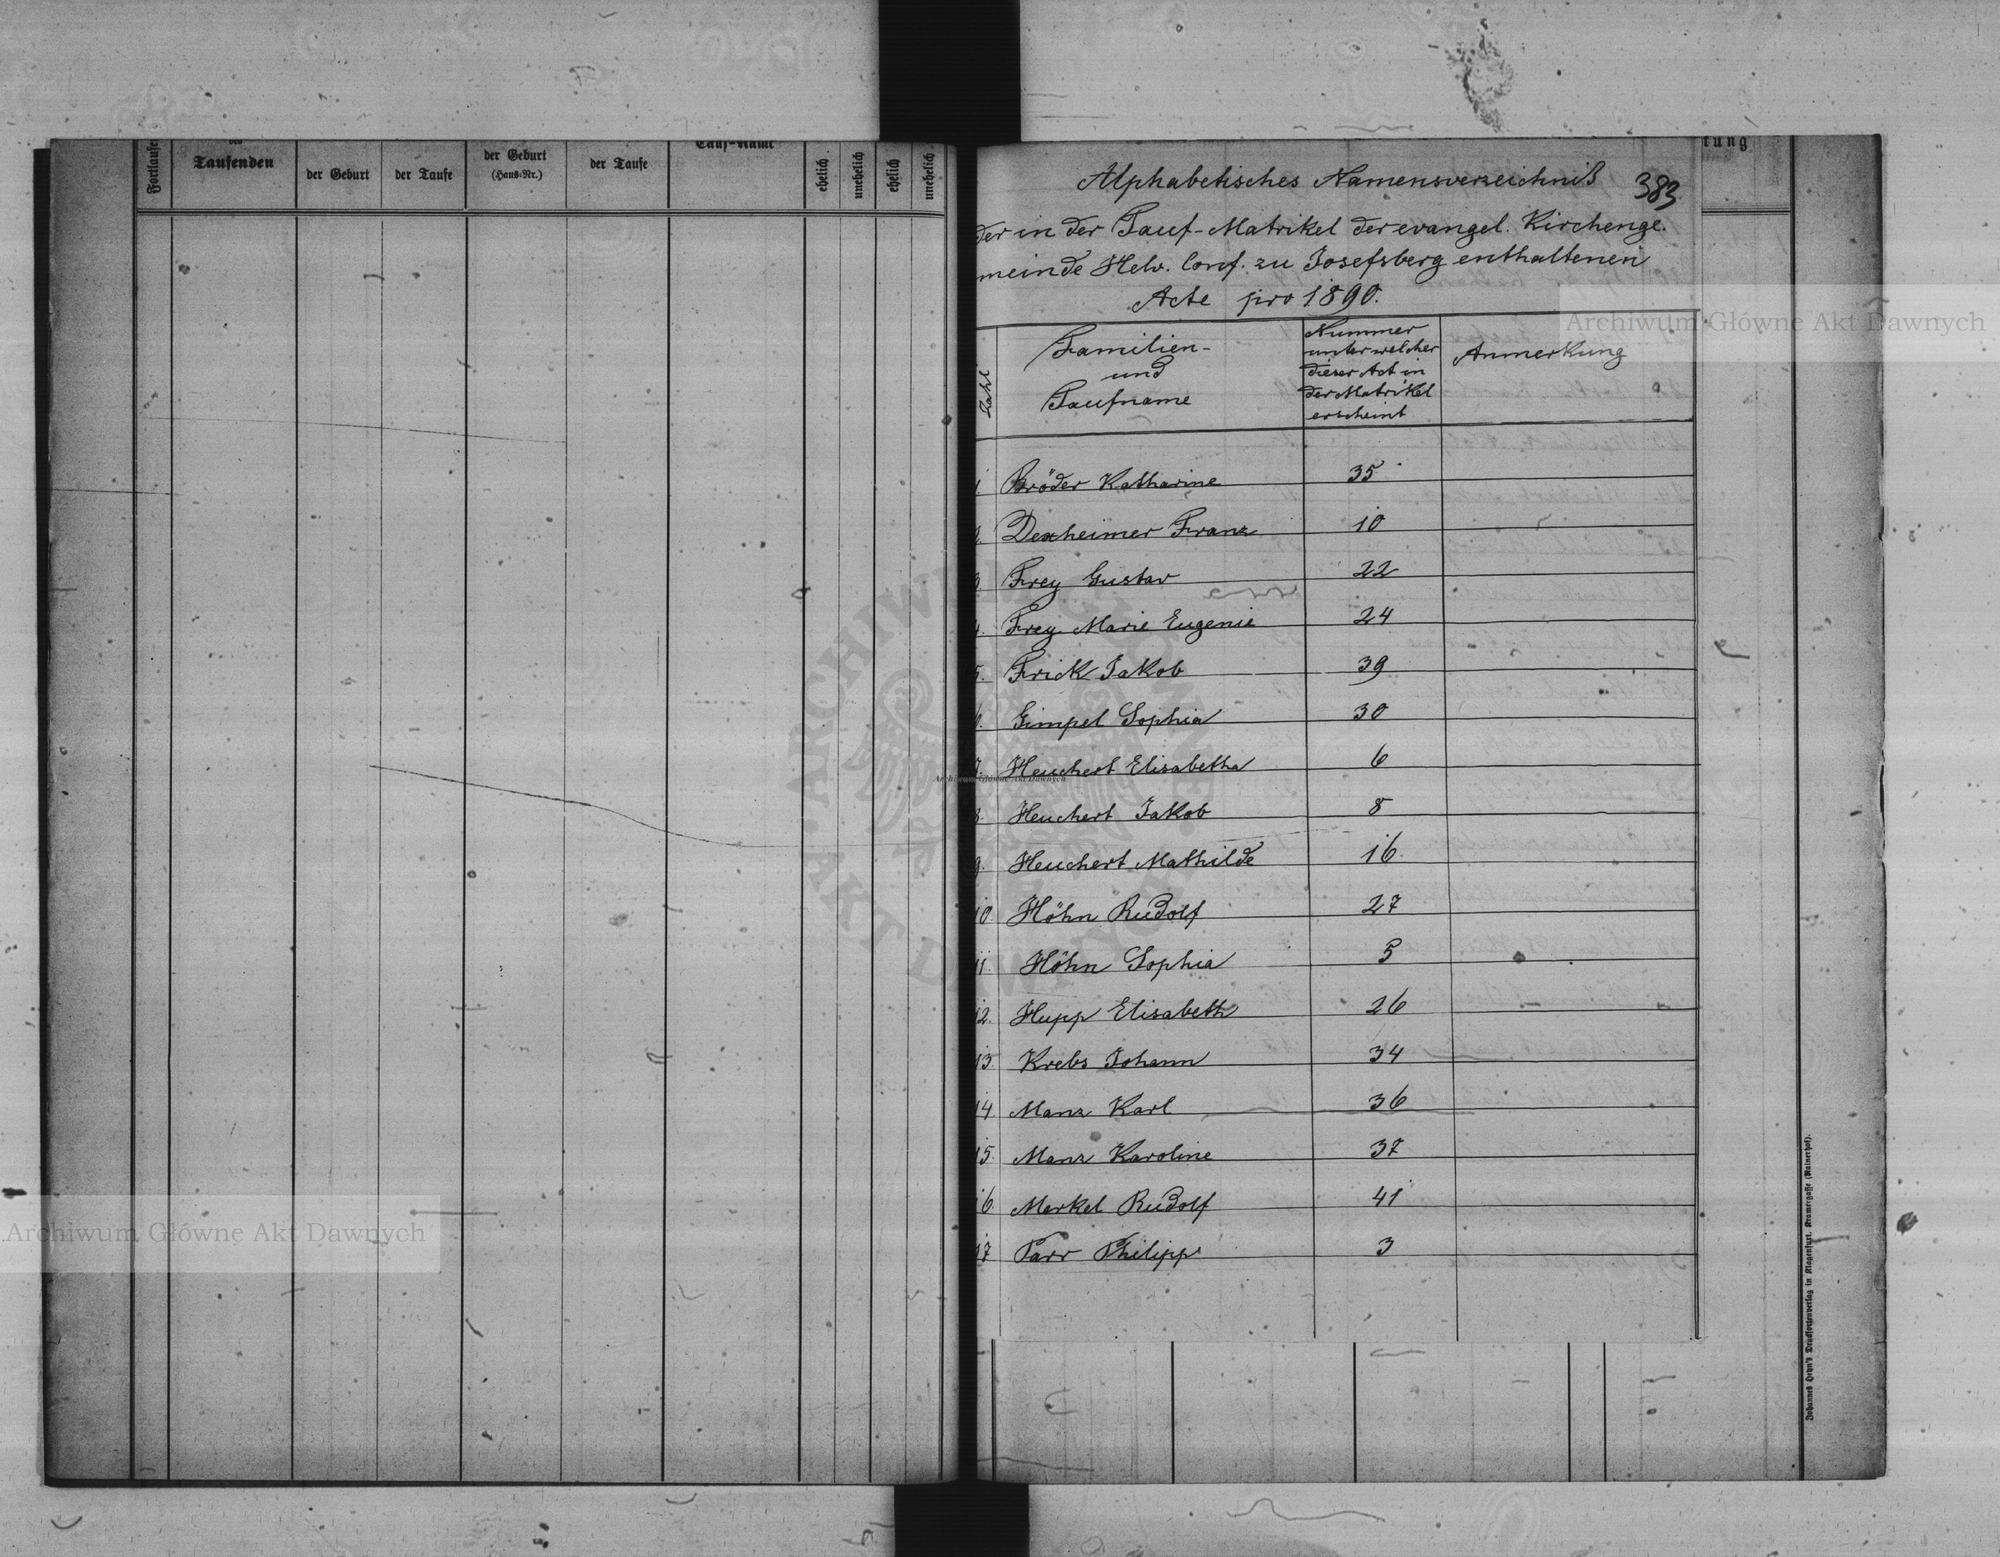 Fortlaufe
des
Taufenden
der Geburt
der Taufe
der Geburt
(Haus-Nr.)
der Taufe
Tauf-Name
ehelich
unehelich
ehelich
unehelich
Alphabetisches Namensverzeichniß
383
der in der Tauf-Matrikel der evangel. Kirchenge-
meinde Helv. Conf. zu Josefsberg enthaltenen
Acte pro 1890.
Zahl
Familien-
und
Taufname
Nummer
unter welcher
dieser Act in
der Matrikel
erscheint
Anmerkung
1. Bröder Katharine 35
2. Dexheimer Franz 10
3. Frey Gustav 22
4. Frey Marie Eugenie 24
5. Frick Jakob 39
6. Gimpel Sophia 30
7. Heuchert Elisabetha 6
8. Heuchert Jakob 8
9. Heuchert Mathilde 16
10 Höhn Rudolf 27
11. Höhn Sophia 5
12. Hupp Elisabeth 26
13 Krebs Johann 34
14 Manz Karl 36
15. Manz Karoline 37
16 Merkel Rudolf 41
17 Parr Philipp 3
tung
Johannes Heyn's Drucksortenverlag in Klagenfurt, Kramergasse (Rainerhof).
Archiwum Główne Akt Dawnych
Archiwum Główne Akt Dawnych
Archiwum Główne Akt Dawnych
ARCHIWUM GŁÓWNE AKT DAWNYCH